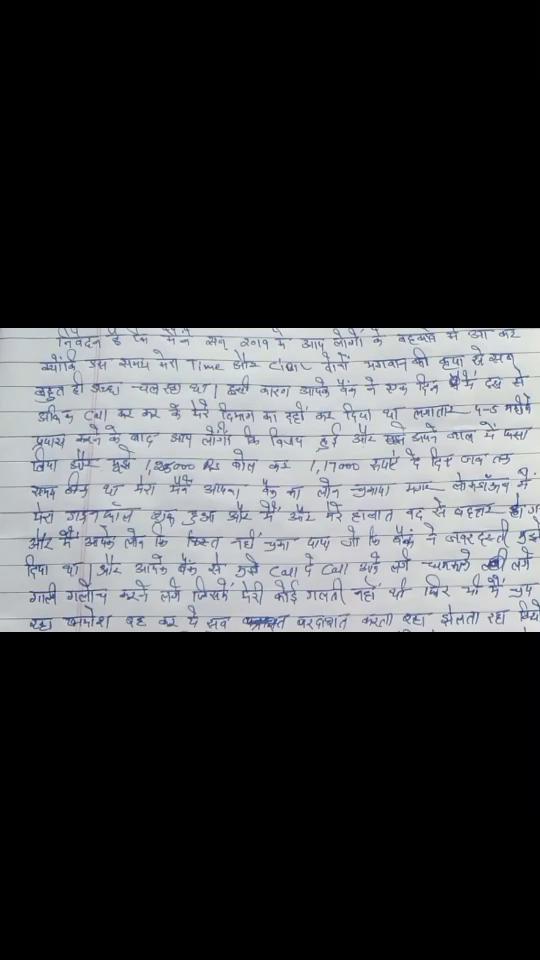 निवेदन है कि मैने सन् 2019 में आप लोगों के बहकावे में आ कर
क्योंकि उस समय मेरा Time और दोनों भगवान की कृपा से सब
बहुत ही अच्छा चल रहा था। इसी कारण आपके बैंक ने एक दिन में दस से
अधिक Call कर कर के मेरे दिमाग का दही कर दिया था लगातार 4-5 महीने
प्रयास करने के बाद आप लोगों कि विजय हुई और अपने जाल में फसा
लिया और मुझे 1,25000 Rs बोल कर 1,17000 रुपए दे दिए जब तक
समय ठीक था मेरा मैंने आपका बैंक का लोन चुकाया मगर लोकडाऊन में
मेरा शुरू हुआ और में और मेरे हालात बद से बहत्तर हो
और मैं आपके लोन कि किस्त नहीं चुका पाया जो कि बैंक ने जबरदस्ती मुझे
दिया था। और आपके बैंक से मुझे Call पे Call आने लगे धमकाने लगे
गाली गलौच करने लगे जिसमें मेरी कोई गलती नहीं थी फिर भी मैं चुप
रहा खामोश रह कर ये सब बरदाशत करता रहा झेलता रहा